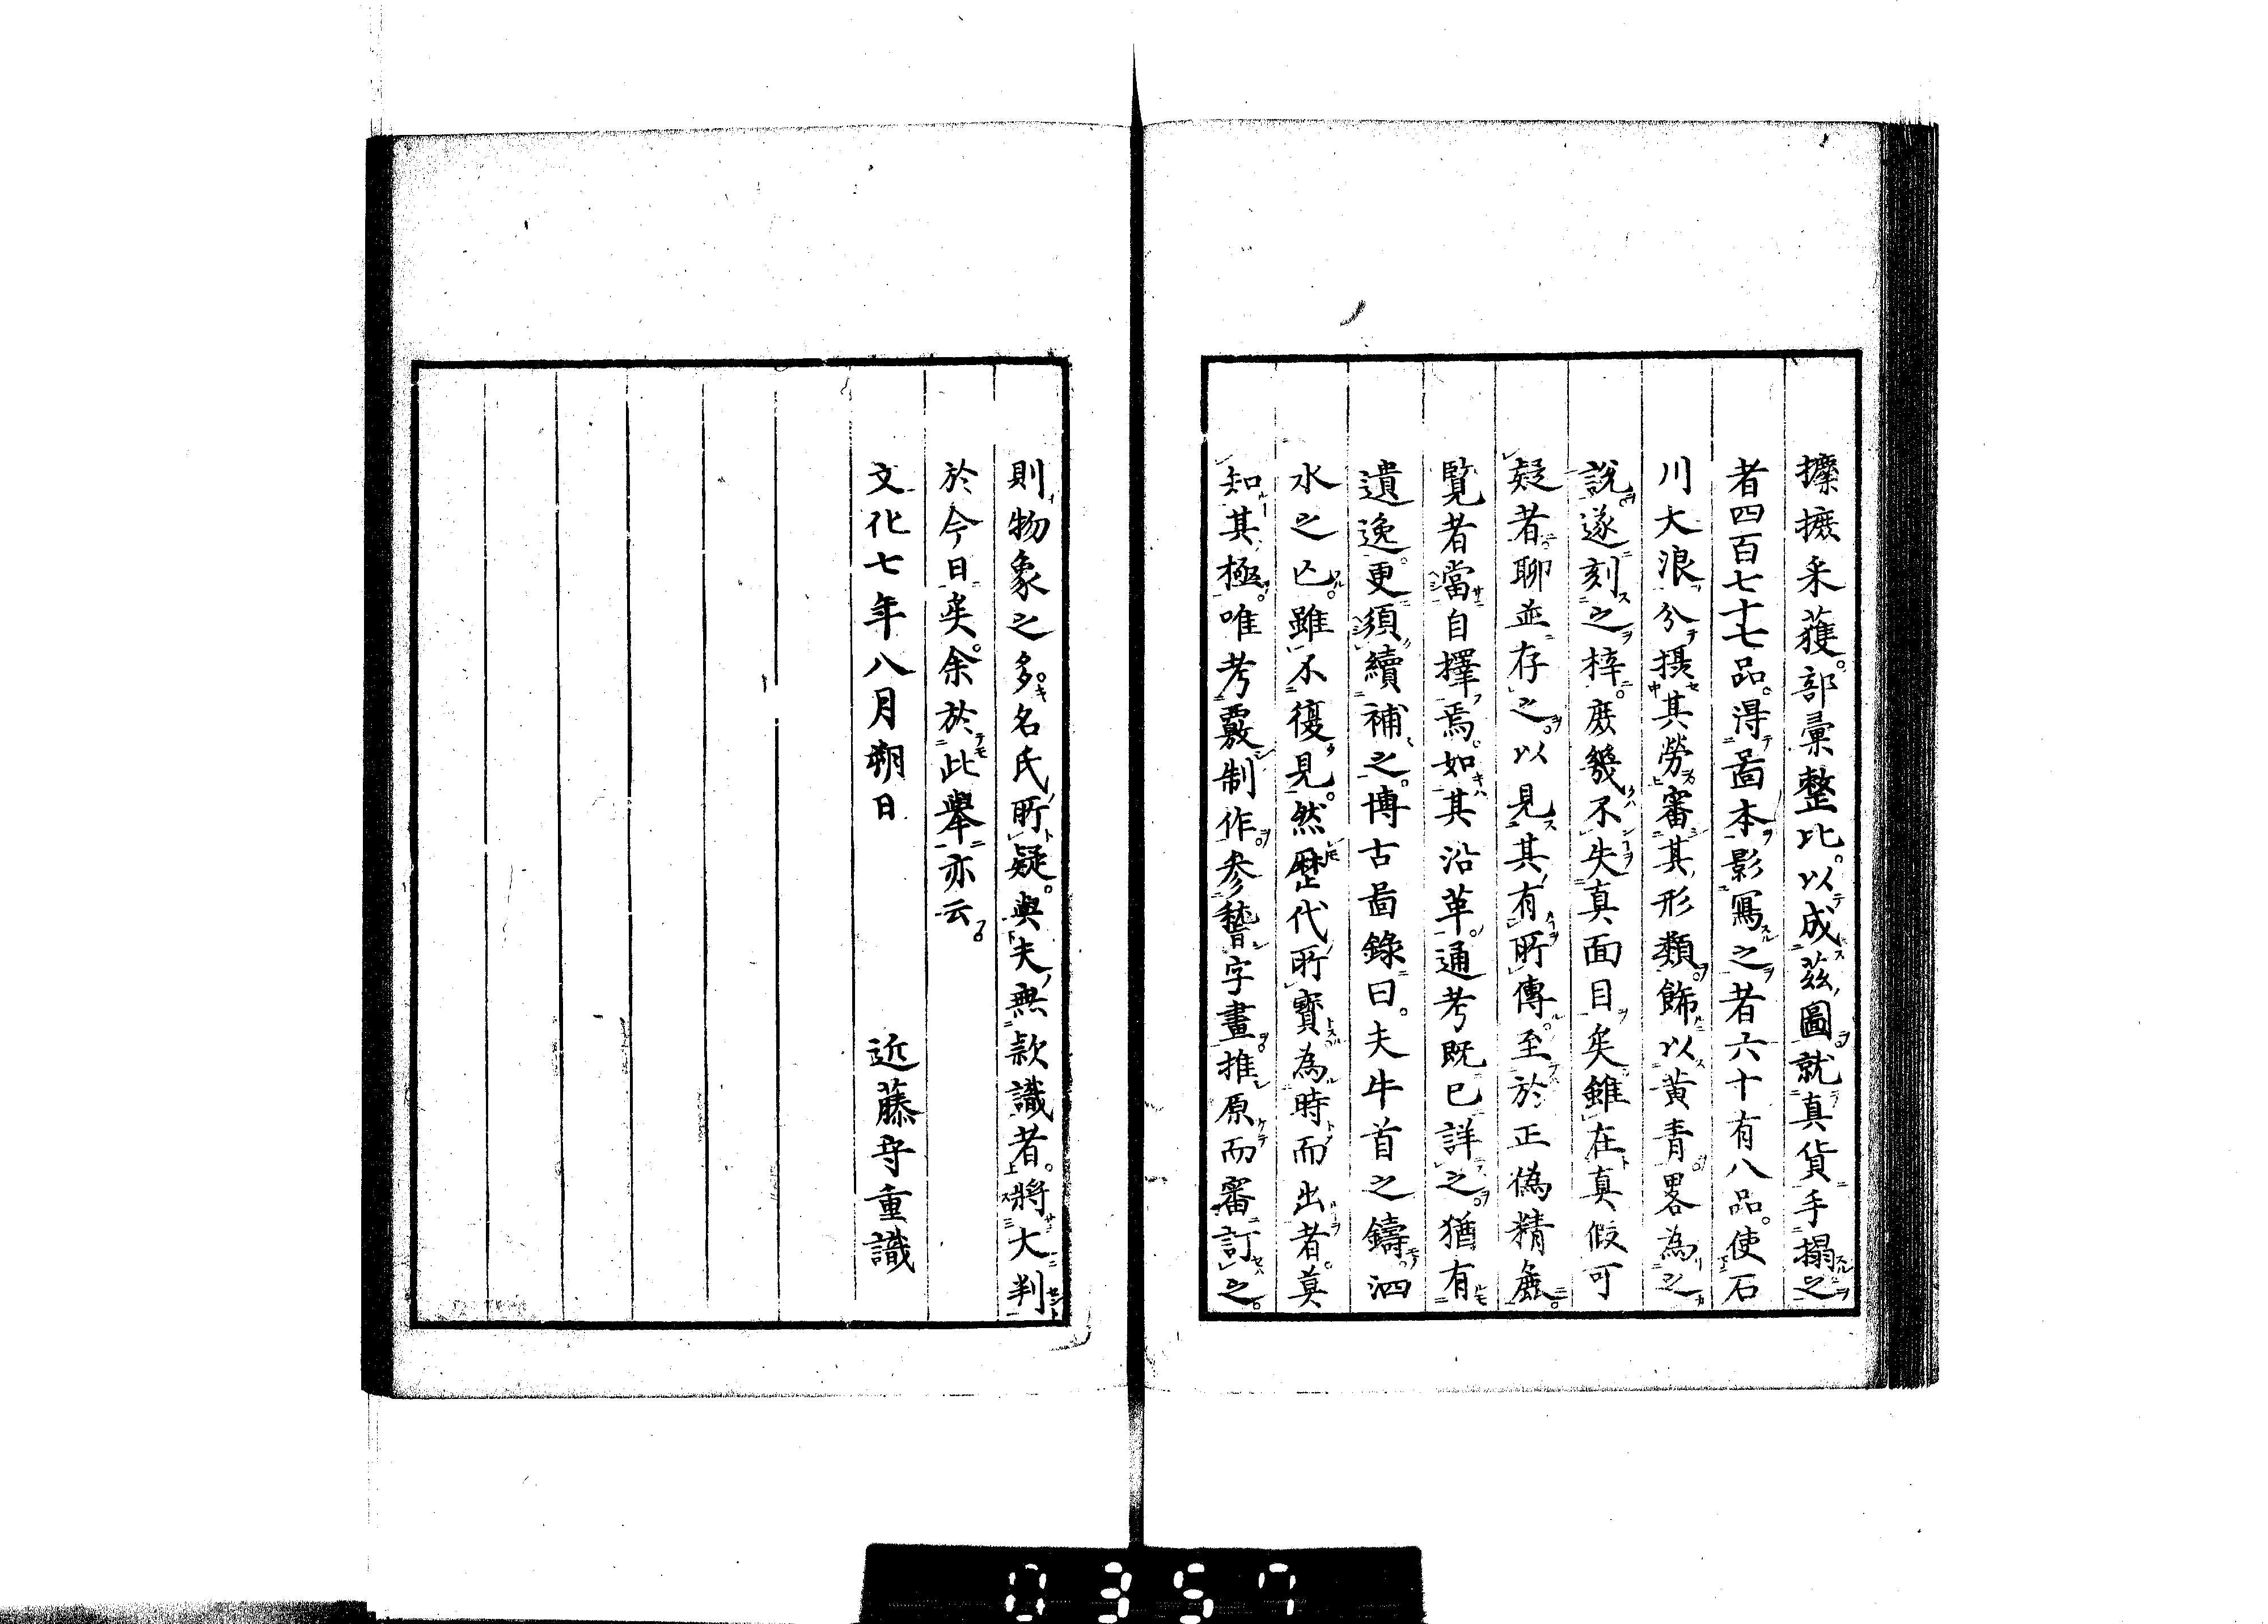 攈摭采獲。部彙整比。以成茲圖就真貨手搨之
者四百七十七品。得啚本影寫之者六十有八品。使石
川大浪分攝其勞審其形類。飾以黃青畧為之
說。遂刻之梓。庶幾不失真面目矣雖在真假可
疑者聊並存之。以見其有所傳。至於正偽精麁。
覧者當自擇焉。如其沿革。通考既已詳之。猶有
遺逸。更須續補之。博古啚錄曰。夫牛首之鑄。泗
水之亡。雖不復見。然歷代所寶為時而出者。莫
知其極。唯考覈制作。參稽字畫。推原而審訂之。
則物象之多。名氏所疑。與夫無款識者。將大判
於今日矣。余於此舉亦云。
文化七年八月朔日
近藤守重識
0357